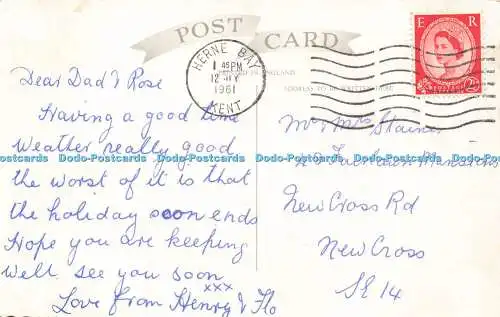 POST CARD
HERNE BAY
1 45 PM
1961
KENT
E R
POSTAGE
ADDRESS TO BE WRITTEN HERE
Dear Dad & Rose
Having a good time
Weather really good
Dodo-Postcards Dodo-Postcards Dodo-Postcards Dodo-Postcards Dodo-Postcards
the worst of it is that
the holiday soon ends
Hope you are keeping
well see you soon
xxx
Love from Henry & Flo
Mr & Mrs Stainer
New Cross Rd
New Cross
SE 14